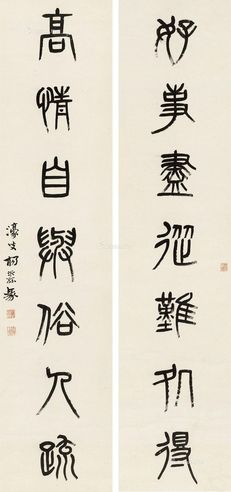 好事盡從難処得
高情自與俗人疏
濠叟楊沂孫篆